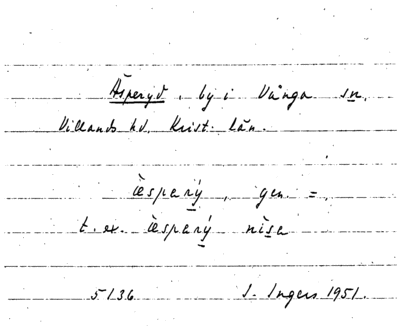 Äsperyd, by i Vånga sn.
Villands hd, Krist. län.
ὲsparý, gen. =,
t. ex. ὲsparý nìsa
5136 I. Ingers 1951.